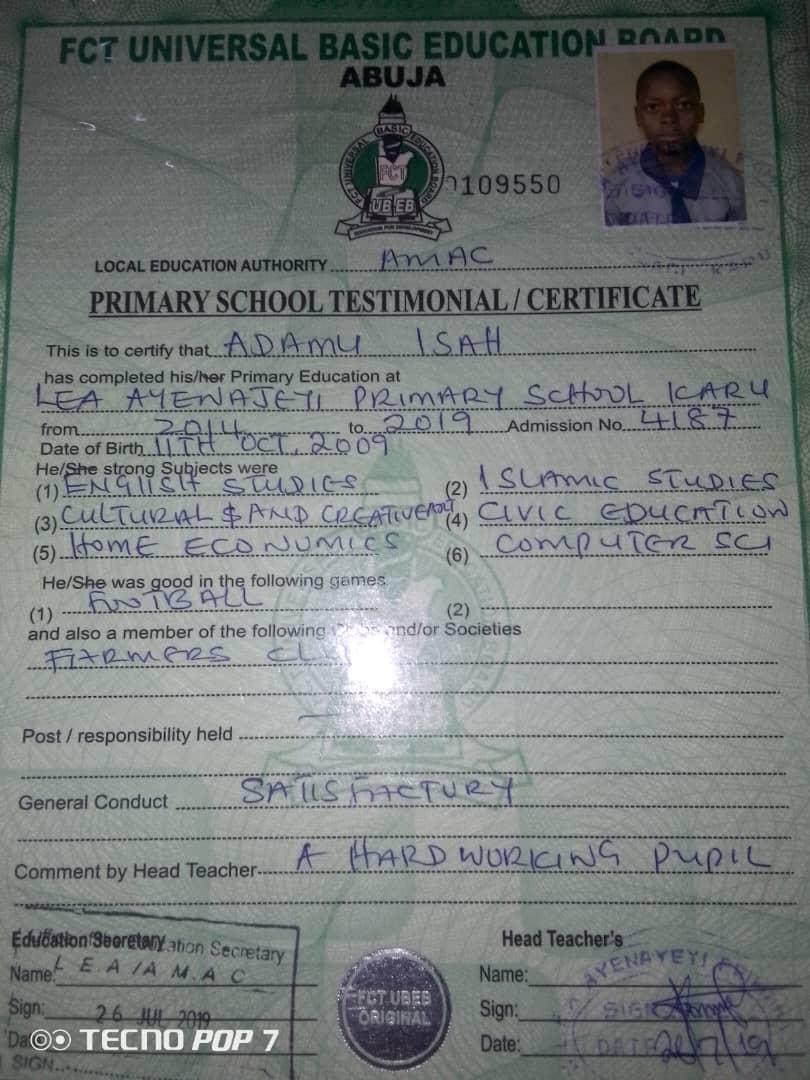 FCT UNIVERSAL BASIC EDUCATION BOARD
ABUJA
FCT UNIVERSAL BASIC EDUCATION BOARD
FCT
UBEB
EDUCATION FOR DEVELOPMENT
109550
LOCAL EDUCATION AUTHORITY AMAC
PRIMARY SCHOOL TESTIMONIAL / CERTIFICATE
This is to certify that ADAMU ISAH
has completed his/her Primary Education at
LEA AYENAJEYI PRIMARY SCHOOL KARU
from 2014 to 2019 Admission No. 4187
Date of Birth 11TH OCT, 2009
He/She strong Subjects were
(1) ENGLISH STUDIES (2) ISLAMIC STUDIES
(3) CULTURAL $ AND CREATIVE ART (4) CIVIC EDUCATION
(5) HOME ECONOMICS (6) COMPUTER SCI
He/She was good in the following games
(1) FOOTBALL (2)
and also a member of the following and/or Societies
FARMERS
Post / responsibility held
General Conduct SATISFACTORY
Comment by Head Teacher A HARDWORKING PUPIL
Education Secretary Head Teacher's
Education Secretary
Name: L E A / A M A C Name:
AYENAYEYI
Sign: 26 JUL 2019 Sign:
SIGN
FCT UBEB
ORIGINAL
Date: DATE 26/7/19
TECNO POP 7
SIGN